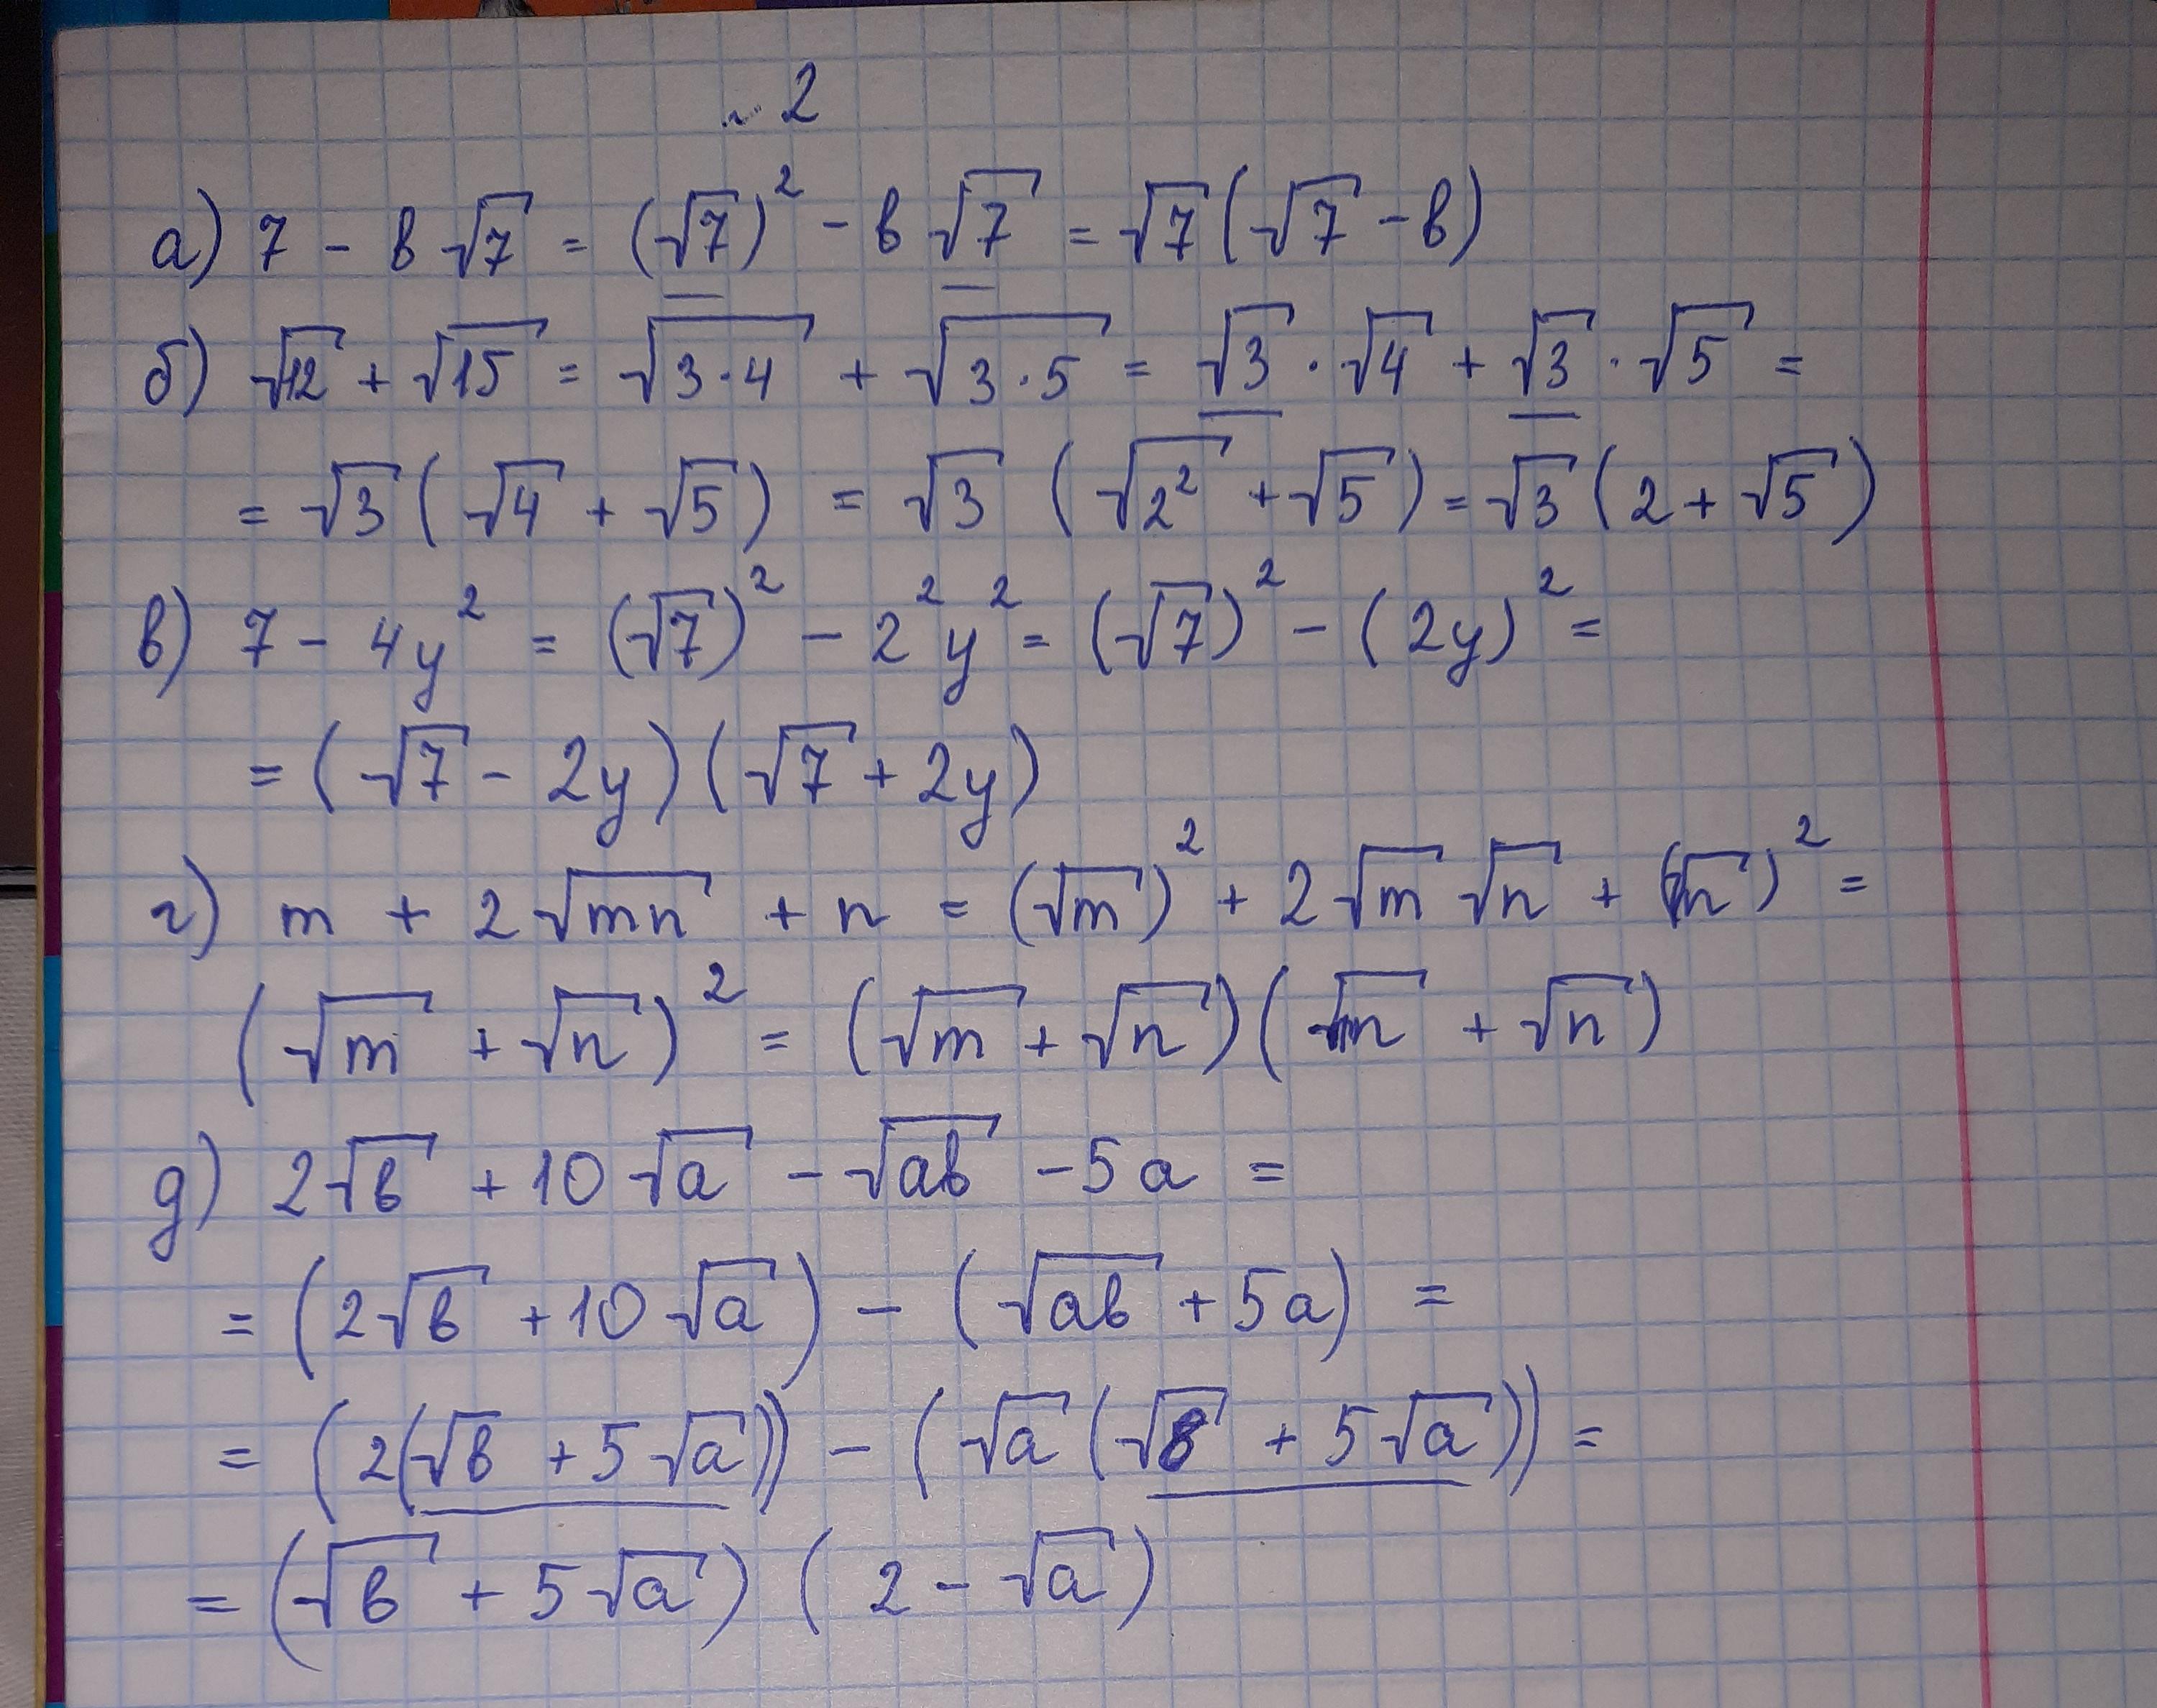 №2
а) 7 - в√7 = (√7)² - в√7 = √7(√7 - в)
б) √12 + √15 = √3·4 + √3·5 = √3·√4 + √3·√5 =
= √3(√4 + √5) = √3 (√2² + √5) = √3(2 + √5)
в) 7 - 4y² = (√7)² - 2²y² = (√7)² - (2y)² =
= (√7 - 2y)(√7 + 2y)
г) m + 2√mn + n = (√m)² + 2√m√n + (√n)² =
(√m + √n)² = (√m + √n)(√m + √n)
д) 2√в + 10√a - √aв - 5a =
= (2√в + 10√a) - (√aв + 5a) =
= (2(√в + 5√a)) - (√a(√в + 5√a)) =
= (√в + 5√a)(2 - √a)